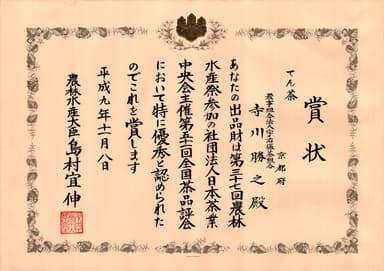 賞状
てん茶
京都府
寺川勝之殿
あなたの出品財は第三十七回農林
水産祭参加の社団法人日本茶業
中央会主催第五十一回全国茶品評会
において特に優秀と認められた
のでこれを賞します
平成九年十一月八日
農林水産大臣 島村宜伸